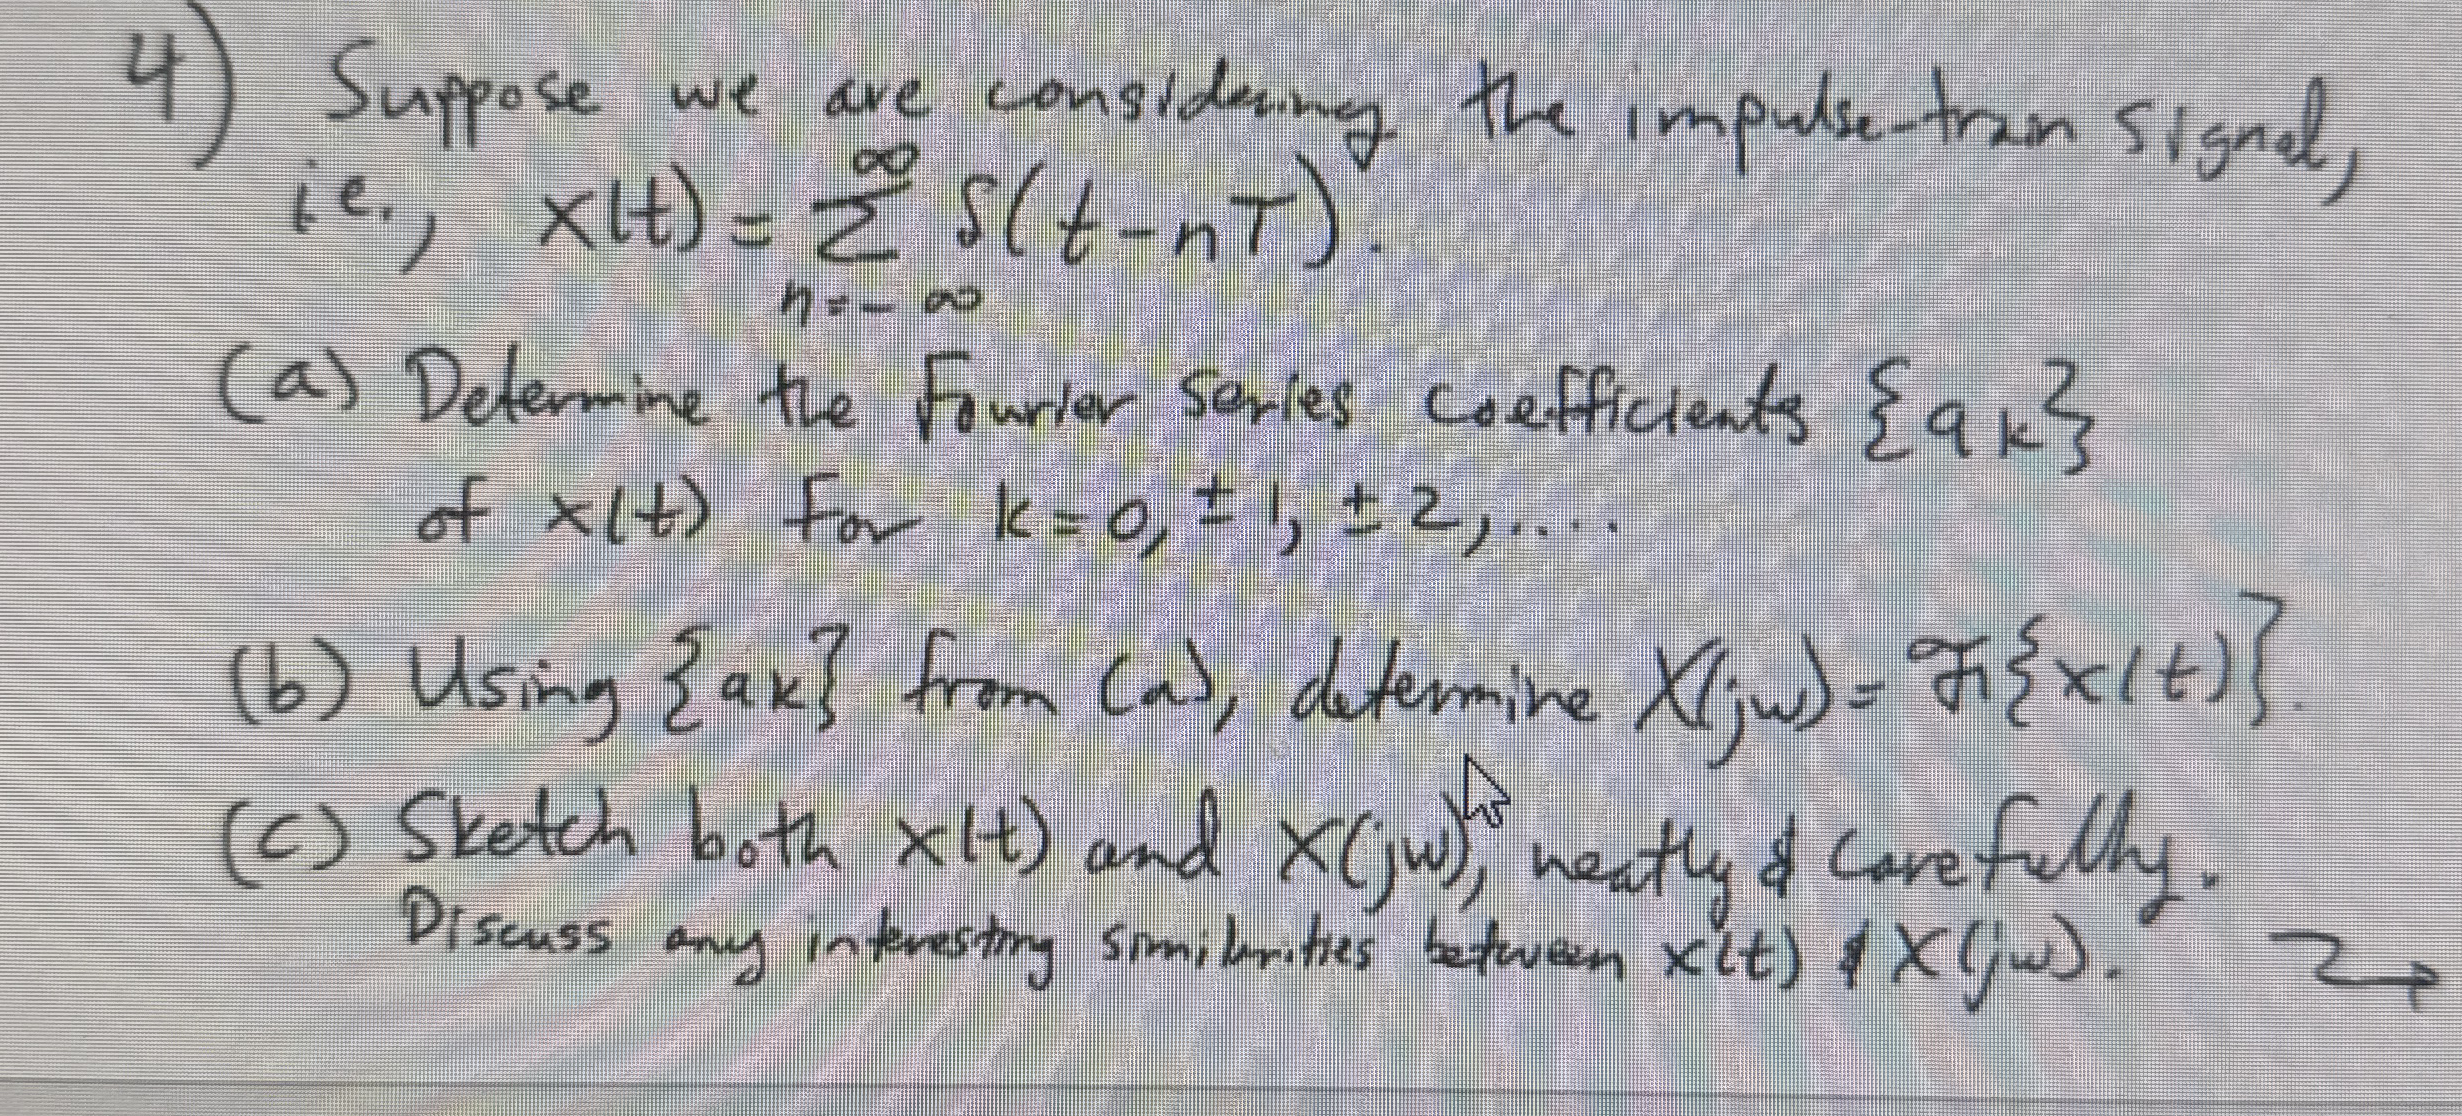 4) Suppose we are considering the impulse-train signal,
i.e., x(t) = ∞ Σ n=-∞ δ(t-nT).
(a) Determine the Fourier series coefficients {ak}
of x(t) for k=0, ±1, ±2,....
(b) Using {ak} from (a), determine X(jw) = F{x(t)}.
(c) Sketch both x(t) and X(jw), neatly & carefully.
Discuss any interesting similarities between x(t) & X(jw).